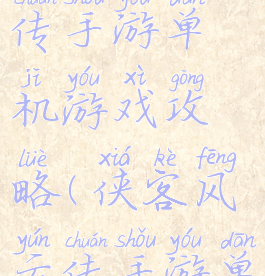 chuán shǒu yóu dān
传手游单
jī yóu xì gōng
机游戏攻
lüè xiá kè fēng
略(侠客风
yún chuán shǒu yóu dān
云传手游单